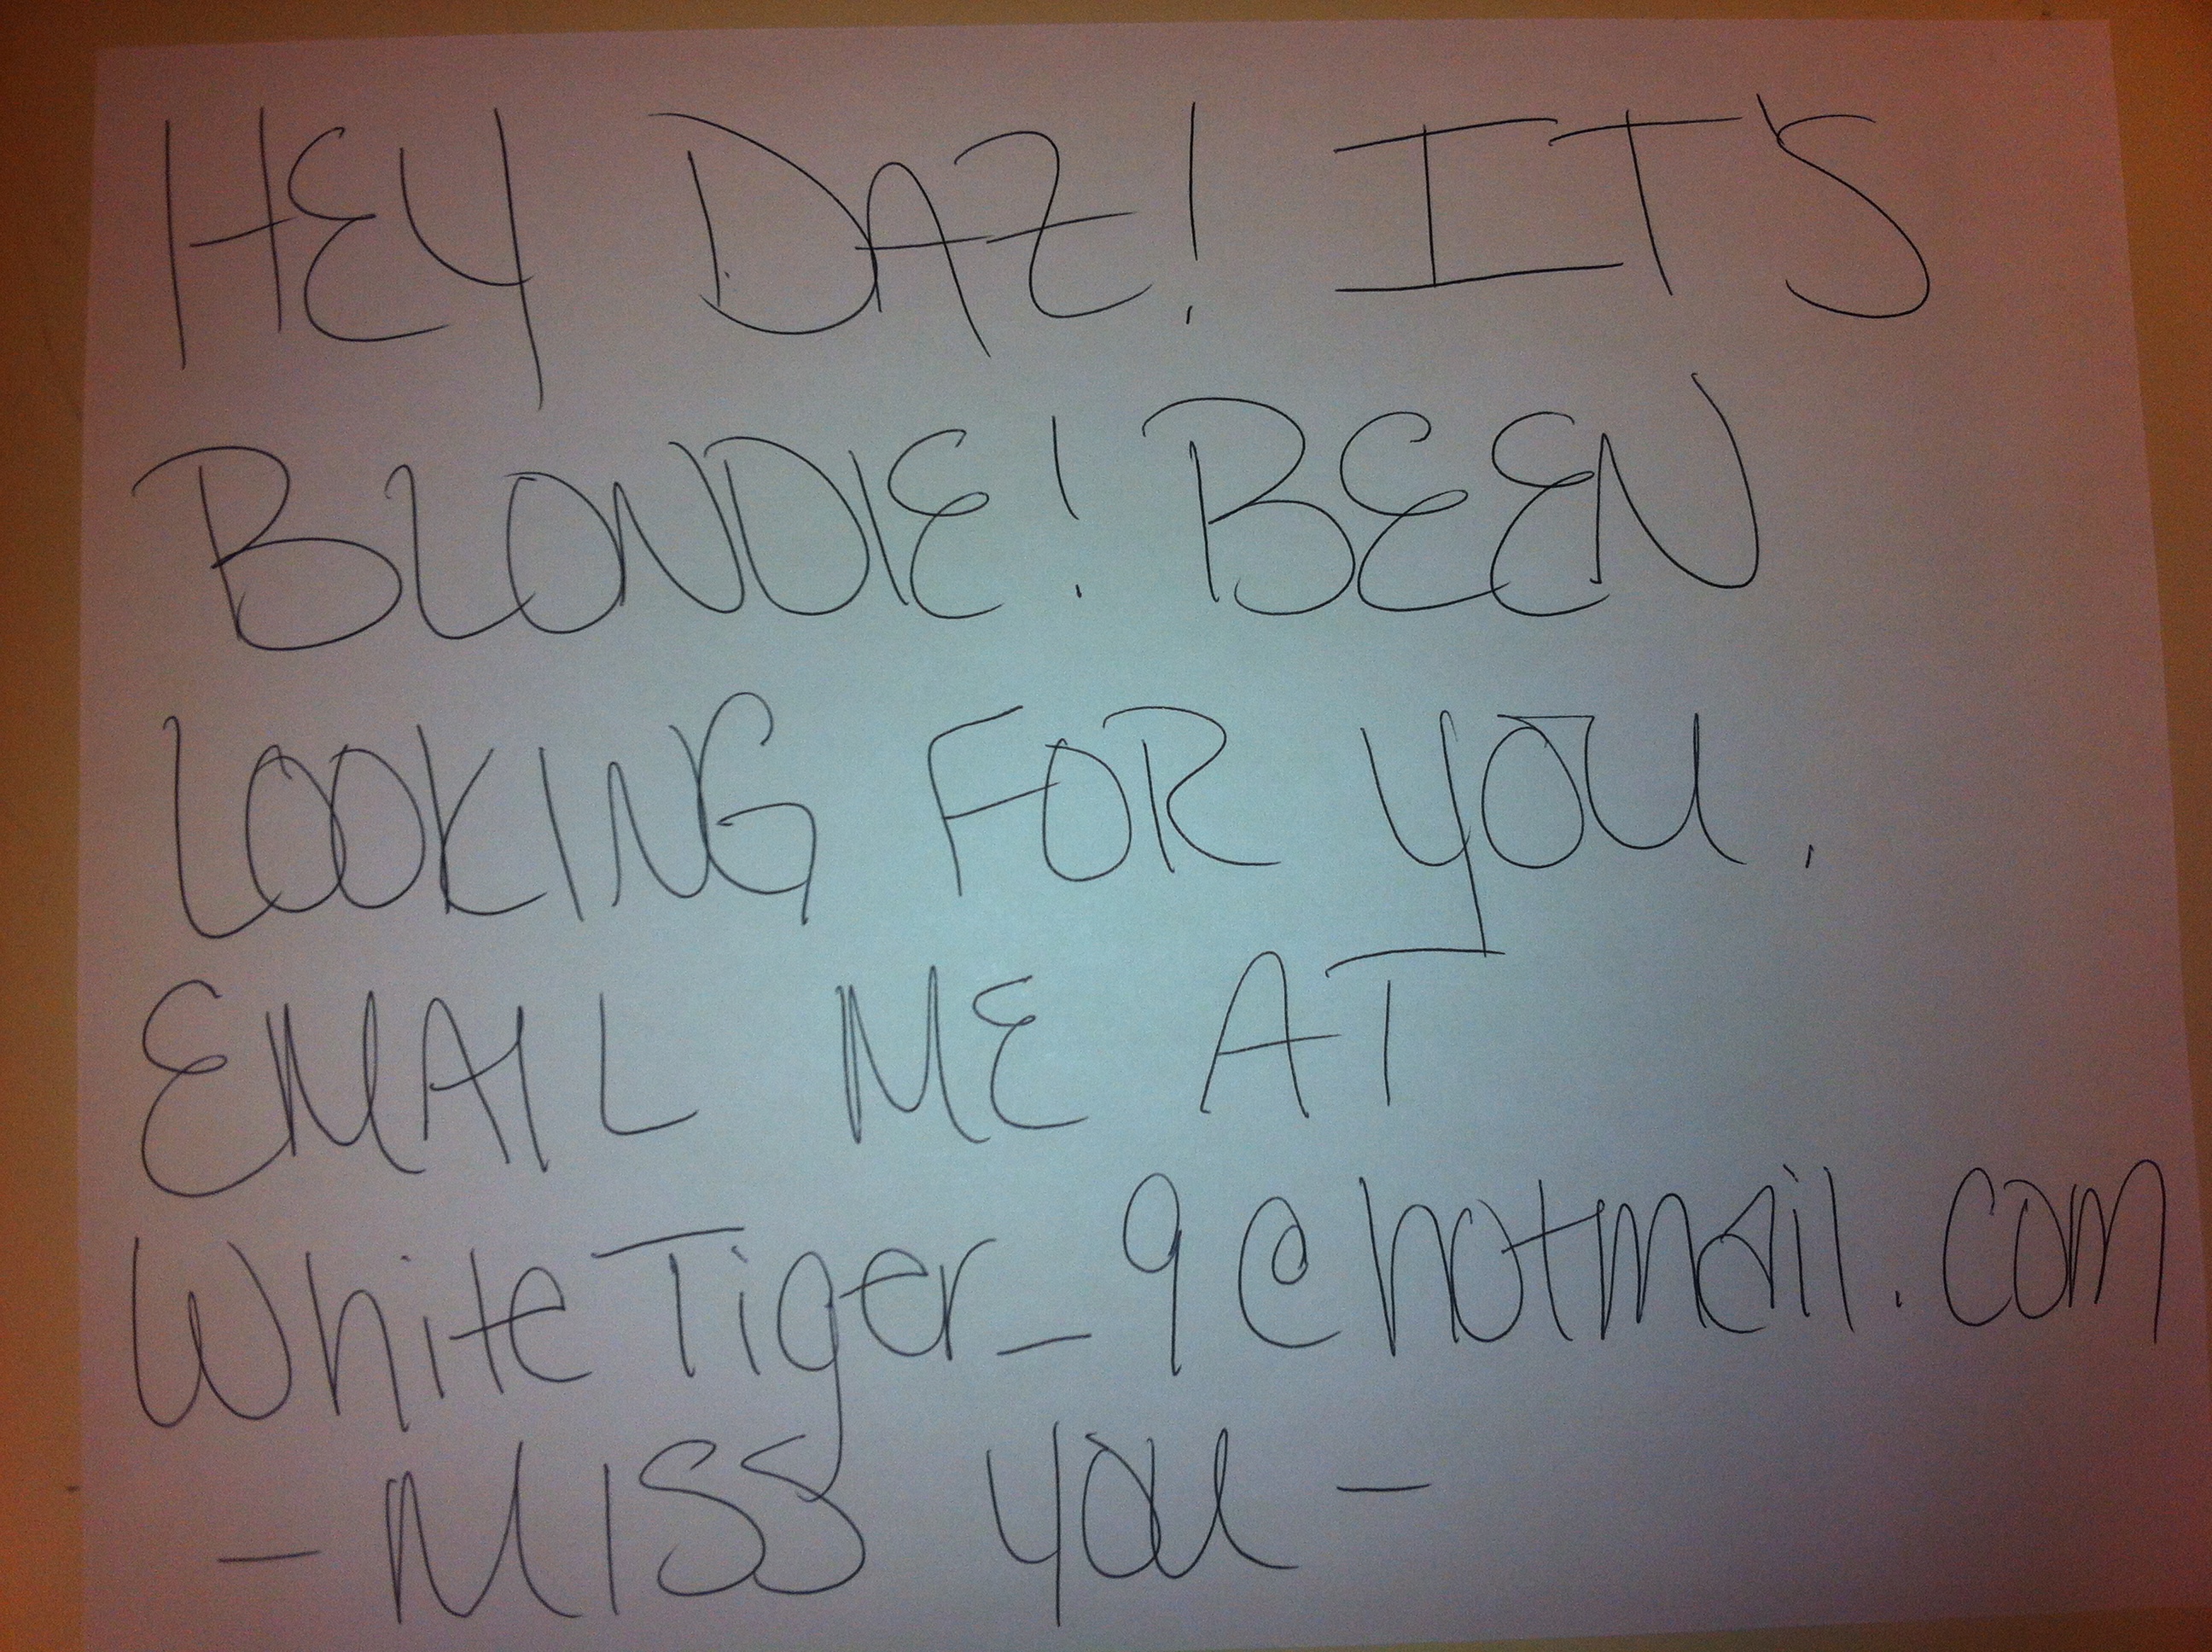 HEY DAZ! IT'S
BLONDIE! BEEN
LOOKING FOR YOU.
EMAIL ME AT
WhiteTiger_9@hotmail.com
- MISS YOU -